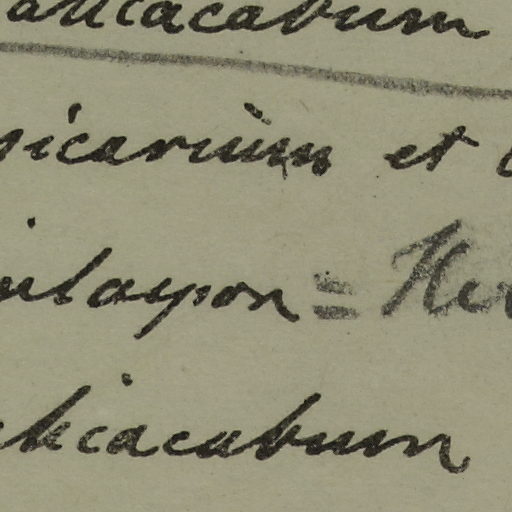 alicacabum
sicarium et
ulaypon = Her
licacabum